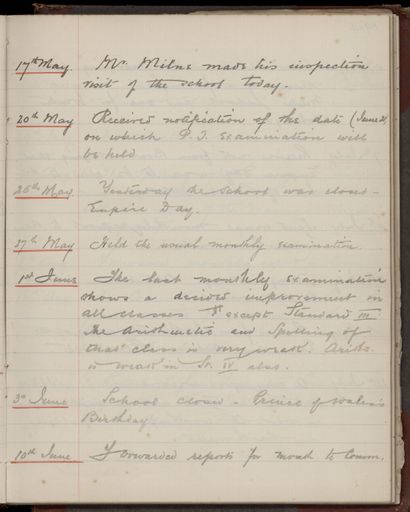 17th May. Mr. Milne made his inspection
visit of the school today.
20th May Received notification of the date (June 21
on which P.T. Examination will
be held
25th May. Yesterday the School was closed -
Empire Day.
27th May Held the usual monthly examination.
1st June The last monthly examination
shows a decided improvement in
all classes except Standard III
The Arithmetic and Spelling of
that class is very weak. Arith.
is weak in St. IV also.
3rd June School closed - Prince of Wales's
Birthday
10th June Forwarded reports for month to Comm.